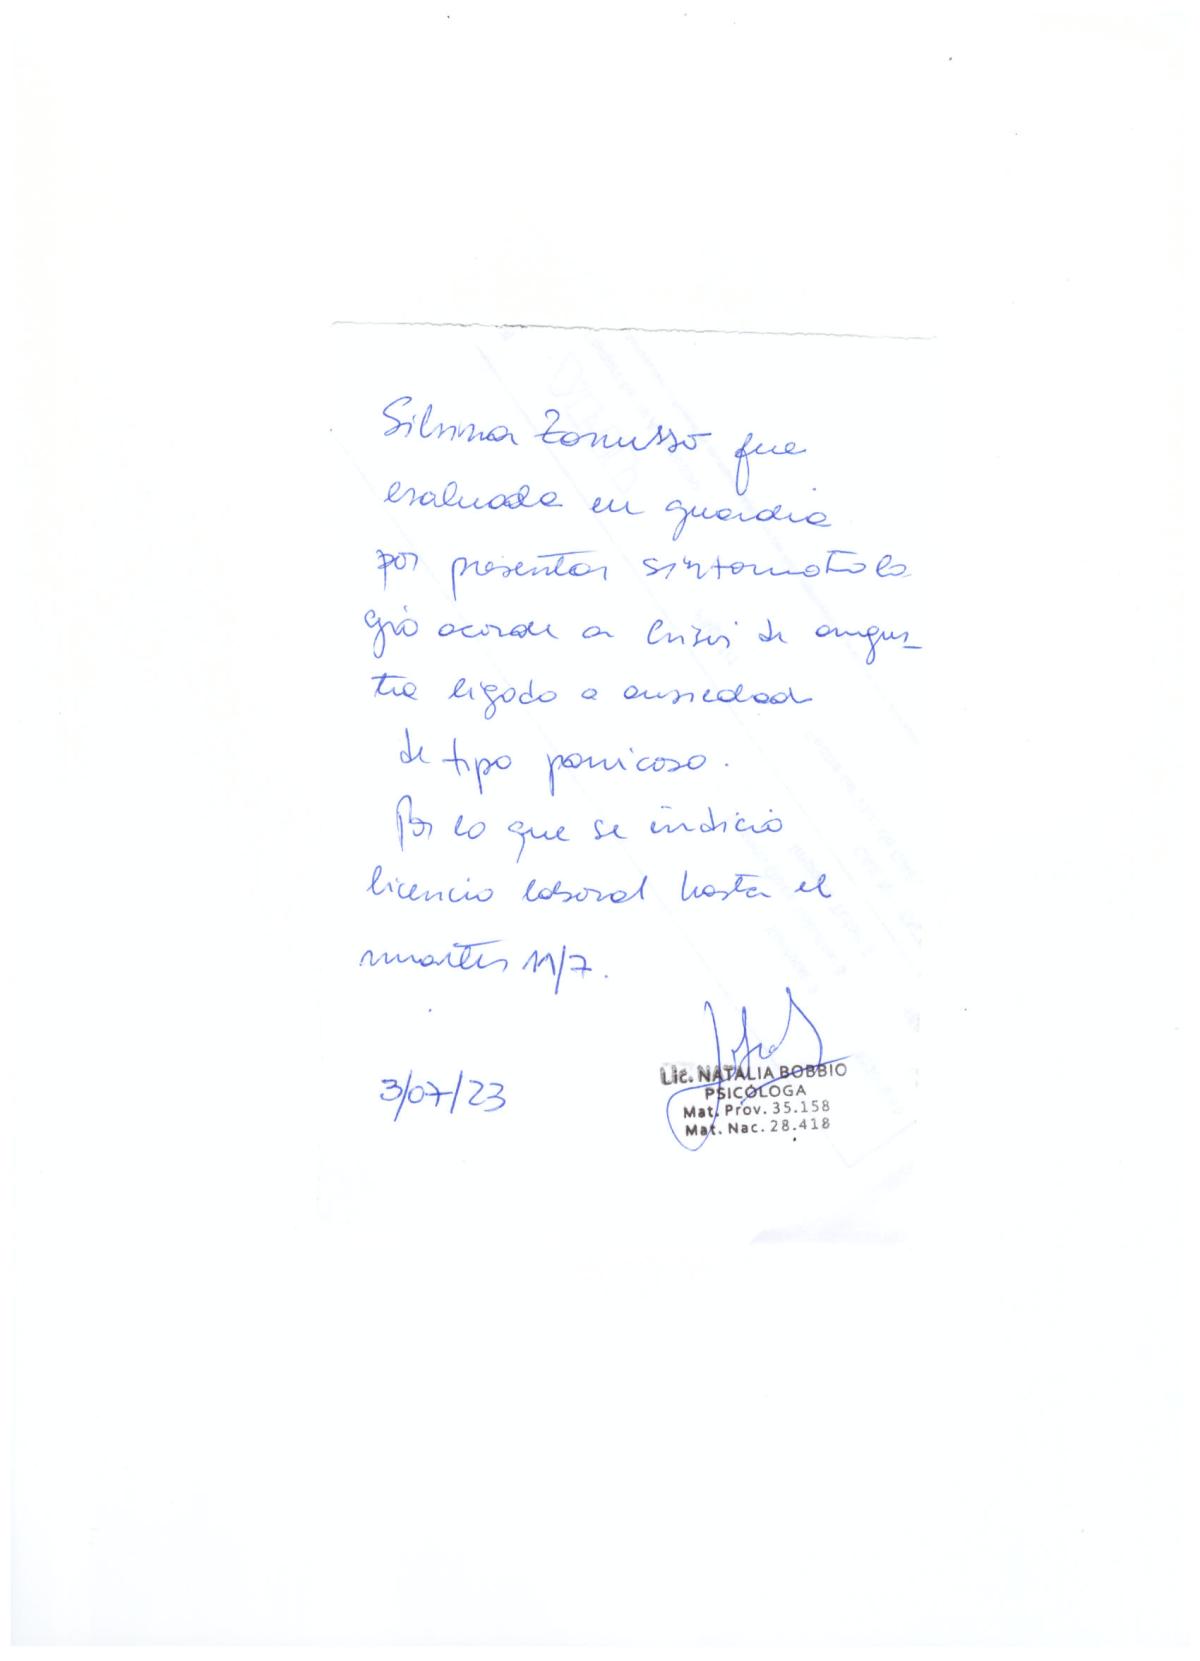 Silvina Zanusso fue
evaluada en guardia
por presentar sintomatolo
gia acorde a crisis de angus_
tia ligado a ansiedad
de tipo panicoso.
Por lo que se indicio
licencia laboral hasta el
martes 11/7.
3/07/23
Lic. NATALIA BOBBIO
PSICÓLOGA
Mat. Prov. 35.158
Mat. Nac. 28.418